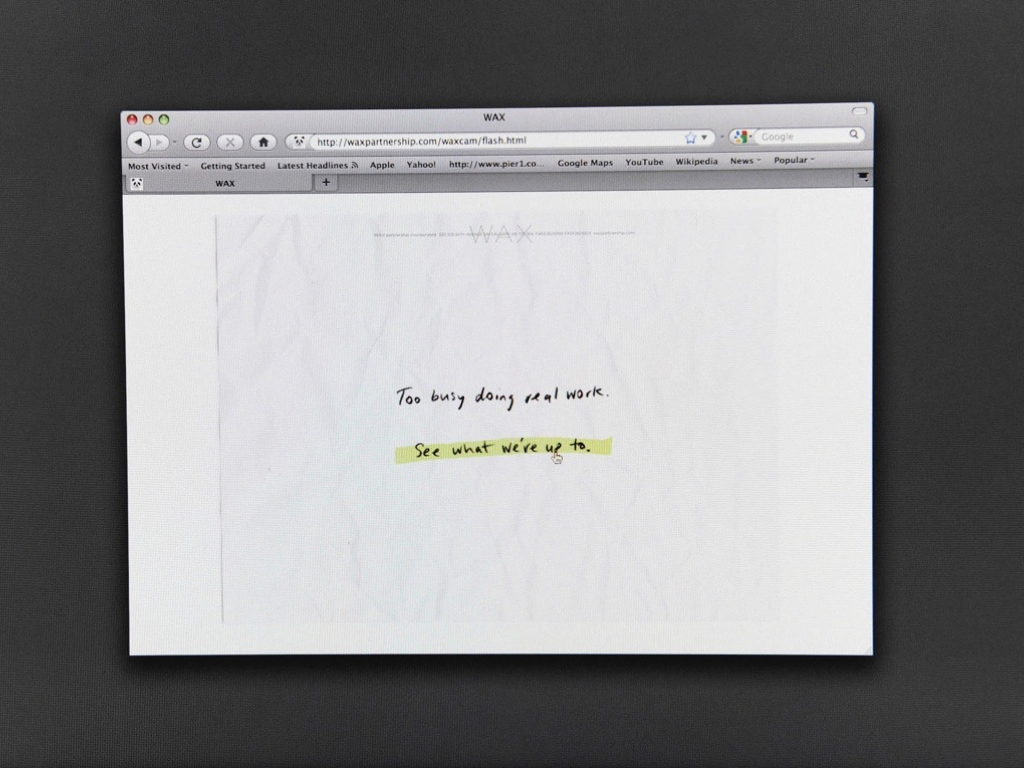 WAX
http://waxpartnership.com/waxcam/flash.html
Google
Most Visited Getting Started Latest Headlines Apple Yahoo! http://www.pier1.co... Google Maps YouTube Wikipedia News Popular
WAX +
WAX
Too busy doing real work.
See what we're up to.